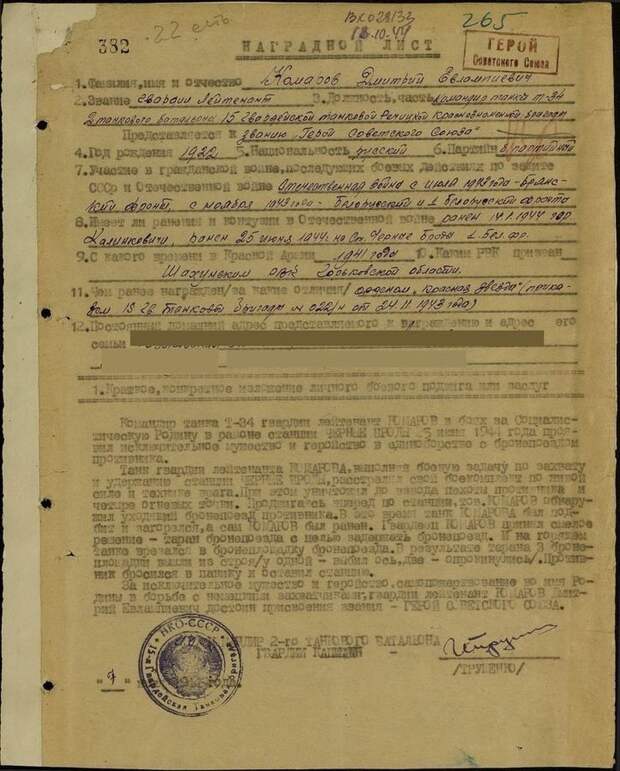 22 есть
ВК028133
13.10.44
265
382
НАГРАДНОЙ ЛИСТ
ГЕРОЙ
Советского Союза
1. Фамилия, имя и отчество Комаров Дмитрий Евлампиевич
2. Звание гвардии Лейтенант 3. Должность, часть командир танка Т-34
2 танкового батальона 15 гвардейской танковой Речицкой Краснознаменной бригады
Представляется к званию „Герой Советского Союза"
4. Год рождения 1922 5. Национальность русский 6. Партийн б/партийный
7. Участие в гражданской войне, последующих боевых действиях по защите
СССР и Отечественной войне Отечественная война с июля 1943 года - Брянс-
кий фронт, с ноября 1943 года - Белорусский и 1 Белорусский фронта
8. Имеет ли ранения и контузии в Отечественной войне ранен 14.1.1944 гор
Калинковичи, ранен 25 июня 1944г. на Ст. Черные Броды 1 Бел фр.
9. С какого времени в Красной Армии 1941 года 10. Каким РВК призван
Шахунским рвк Горьковской области.
11. Чем ранее награжден/за какие отличия/ орденом „Красная Звезда" (прика-
зом 15 гв танковой бригады № 022/н от 24.11.1943 года)
12. Постоянный домашний адрес представляемого к награждению и адрес его
семьи
1. Краткое, конкретное изложение личного боевого подвига или заслуг
Командир танка Т-34 гвардии лейтенант КОМАРОВ в боях за Социалис-
тическую Родину в районе станции ЧЕРНЫЕ БРОДЫ июня 1944 года проя-
вил исключительное мужество и геройство в единоборстве с бронепоездом
противника.
Танк гвардии лейтенанта КОМАРОВА, выполняя боевую задачу по захвату
и удержанию станции ЧЕРНЫЕ БРОДЫ, расстрелял свой боекомплект по живой
силе и технике врага. При этом уничтожил до взвода пехоты противника и
четыре огневых точки. Продвигаясь вперед по станции, тов. КОМАРОВ обнару-
жил уходящий бронепоезд противника. В это время танк КОМАРОВА был под-
бит и загорелся, а сам КОМАРОВ был ранен. Гвардеец КОМАРОВ принял смелое
решение - таран бронепоезда с целью задержать бронепоезд. И на горящем
танке врезался в бронеплощадку бронепоезда. В результате тарана 3 броне-
площадки вышли из строя/у одной - выбил ось, две - опрокинулись/. Против-
ник бросился в панику и оставил станцию.
За исключительное мужество и геройство, самопожертвование во имя Ро-
дины в борьбе с немецкими захватчиками, гвардии лейтенант КОМАРОВ Дмит-
рий Евлампиевич достоин присвоения звания - ГЕРОЙ СОВЕТСКОГО СОЮЗА.
КОМАНДИР 2-го ТАНКОВОГО БАТАЛЬОНА
ГВАРДИИ КАПИТАН -
/ТРУНЕНКО/
года.
НКО-СССР